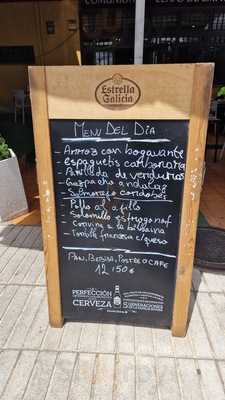 Estrella
Galicia
MENU DEL DIA
- Arroz con bogavante
- espaguetis carbonara
- Parillada de verduras
- Gazpacho andaluz
- Salmorejo cordobes
- Pollo al a fillo
- Solomillo estrogonof
- Corvina a la bilbaina
- Tombik francesa c/queso
PAN, BEBIDA, POSTRE O CAFE
12'50€
PERFECCIÓN
CERVEZA
5 GENERACIONES